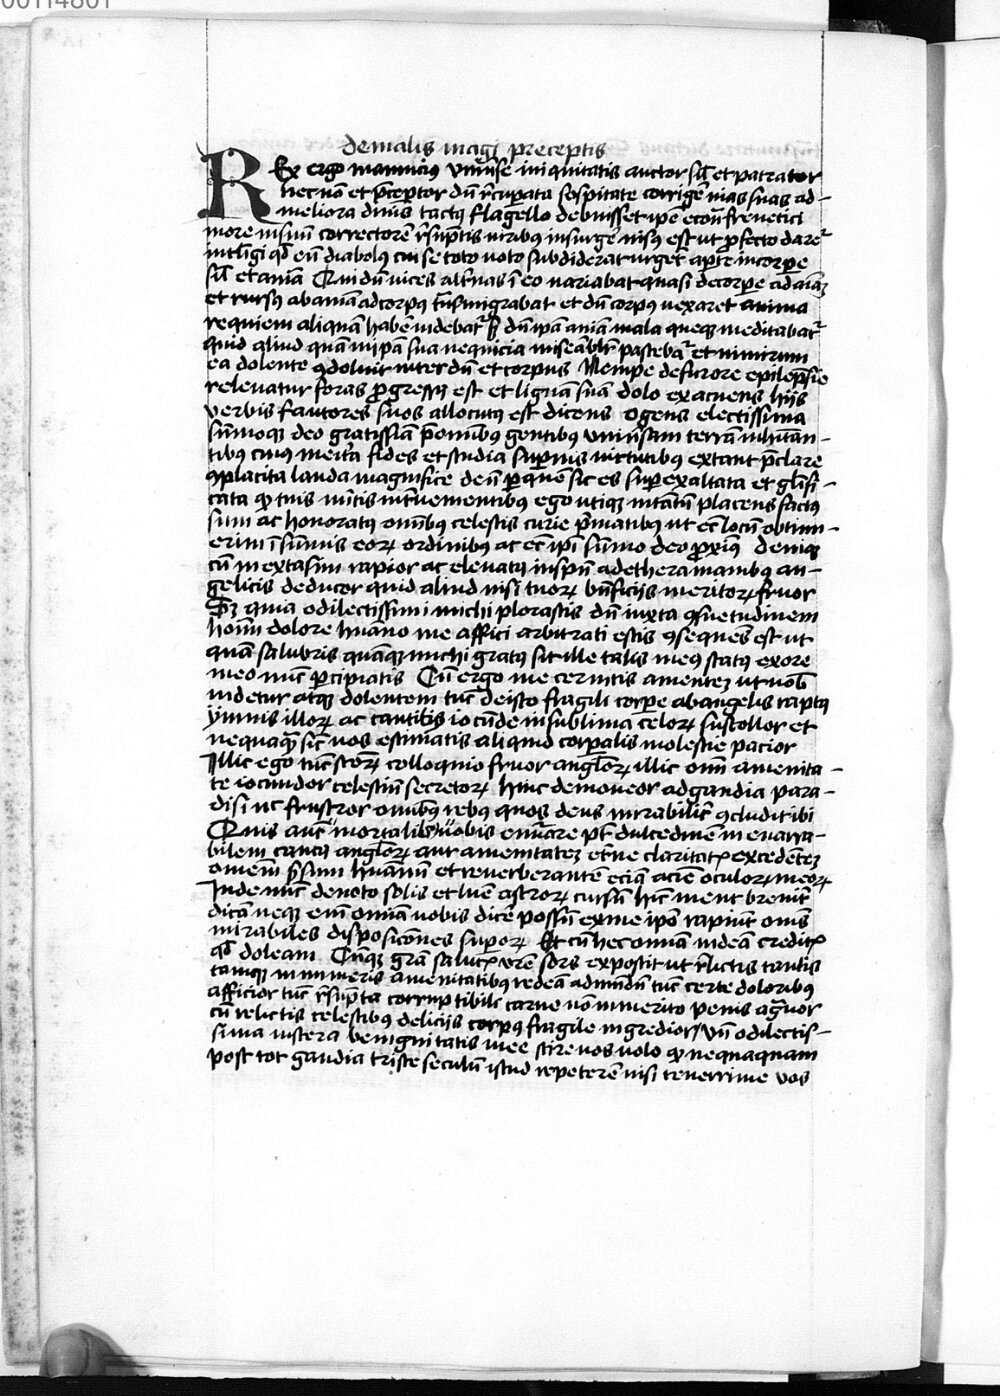 00114801
de malis magi preceptis
Rex ergo mamucius uniuse iniquitatis auctor sil et patrator
nec non et preceptor du recuperata sospitate corrige mas suas ad-
meliora diuis tactus flagello debuisset ipe econ frenetici
more in suu correctore resuptis uiribus insurge nisus est ut profecto dare
intligi qd eu diabolus cui se toto uoto subdiderat urget apte in corpe
sil et aniam Qui du uices altnas i eo uariabat quasi de corpe ad aiaz
et rursus ab aniam ad corpus tnsmigrabat et du corpus uexaret anima
requiem aliquam habe uidebat du ipam aniam mala queque meditabat
quid aliud quam in ipa sua nequicia miseablr pasteba et nimirum
ea dolente condoluit interdu et corpus Nempe de furore epilepsie
releuatur foras progressus est et lignam sua dolo exacuens hiis
verbis fautores suos allocutus est dicens o gens electissima
sumoque deo gratissiam pre omnibus gentibus uniusam terram inhitan-
tibus cuius merita fides et studia supernis uirtutibus extant preclare
placita lauda magnifice deu per quem sic es superexaltata et glifi-
cata quod tuis nutis interuenientibus ego utique in tantu placens factus
sum ac honoratus omnibus celestis curie primatibus ut ec locu obtinu-
erim i sumis eorum ordinibus ac ec ipi sumo deo proxius denique
cu in extasim rapior ac eleuatus in spu ad ethera manibus an-
gelicis deducor quid aliud nisi tuorum bnficiis meritorum fruor
Sz quia o dilectissimi michi plorastis du iuxta consuetudinem
hoim dolore humano me affici arbitrati estis conseques est ut
quam salubris quamque michi gratus sit ille talis meus status ex ore
meo nunc percipiatis Cu ergo me cernitis amentez ut uob
uidetur atque dolentem tuc de isto fragili corpe ab angelis raptus
ymnis illorum ac cantibus iocunde in sublima celorum sustollor et
nequaquam sic uos estimatis aliquid corpalis molestie pacior
Illic ego tuc storum colloquio fruor anglorum illic omi amenita-
te iocundor celestium secretorum hinc demoueor ad grandia para-
disi ac frustror omnibus rebus quos deus mirabilit concludit ibi
Quis aut mortalibus uobis enarrare pt dulcedinem inenarra-
bilem cantus anglorum aut amenitatez et ne claritatis excedentez
omem sensum humanum et reuerberantem eciam acie oculorum meorum
Inde nuc de noto solis et lune astrorum cursum huc ment breuit
dicam neque eni omia uobis dice possu ex me ipo rapiut omis
mirabiles disposiciones superorum Et cu hec omia uideam creditis
quod doleam Cuique gra salutis ure sors exposcit ut relictis tantis
tamque innumeris amenitatibus redeam ad mundu tuc certe doloribus
afficior tuc resumpta corruptibili carne non inmerito penis agruor
cu relictis celestibus deliciis corpus fragile ingredior Un o dilectis-
sima uistera benignitatis mee scire uos uolo quod nequaquam
post tot gaudia triste seculum istud repeterem nisi tenerrime uos